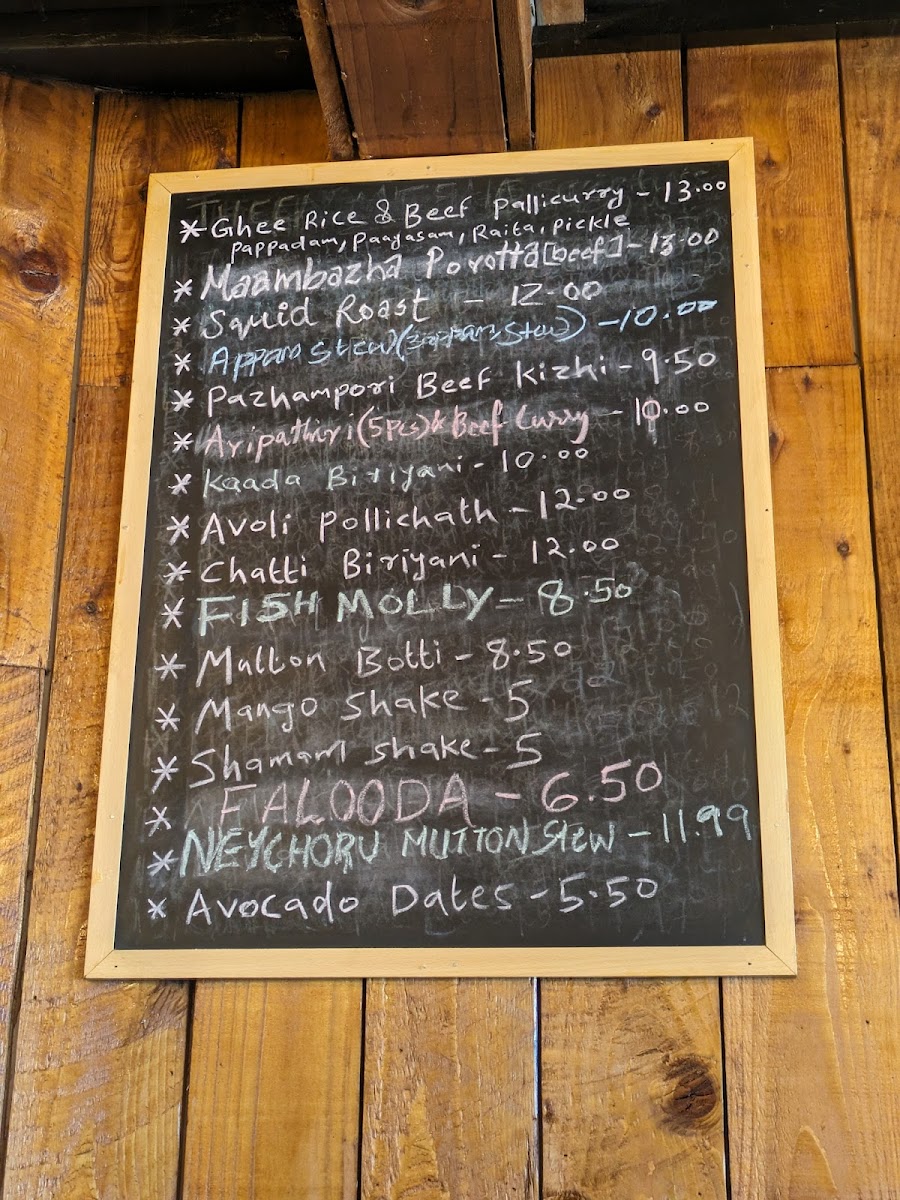 * Ghee Rice & Beef Pallicurry - 13.00
Pappadam, Paayasam, Raita, Pickle
* Maambazha Porotta [beef] - 13.00
* Squid Roast - 12.00
* Appam Stew ( Stew) - 10.00
* Pazhampori Beef Kizhi - 9.50
* Aripathiri (5Pcs) & Beef Curry - 10.00
* Kaada Biriyani - 10.00
* Avoli Pollichath - 12.00
* Chatti Biriyani - 12.00
* FISH MOLLY - 8.50
* Mutton Botti - 8.50
* Mango Shake - 5
* Shamam Shake - 5
* FALOODA - 6.50
* NEYCHORU MUTTON Stew - 11.99
* Avocado Dates - 5.50